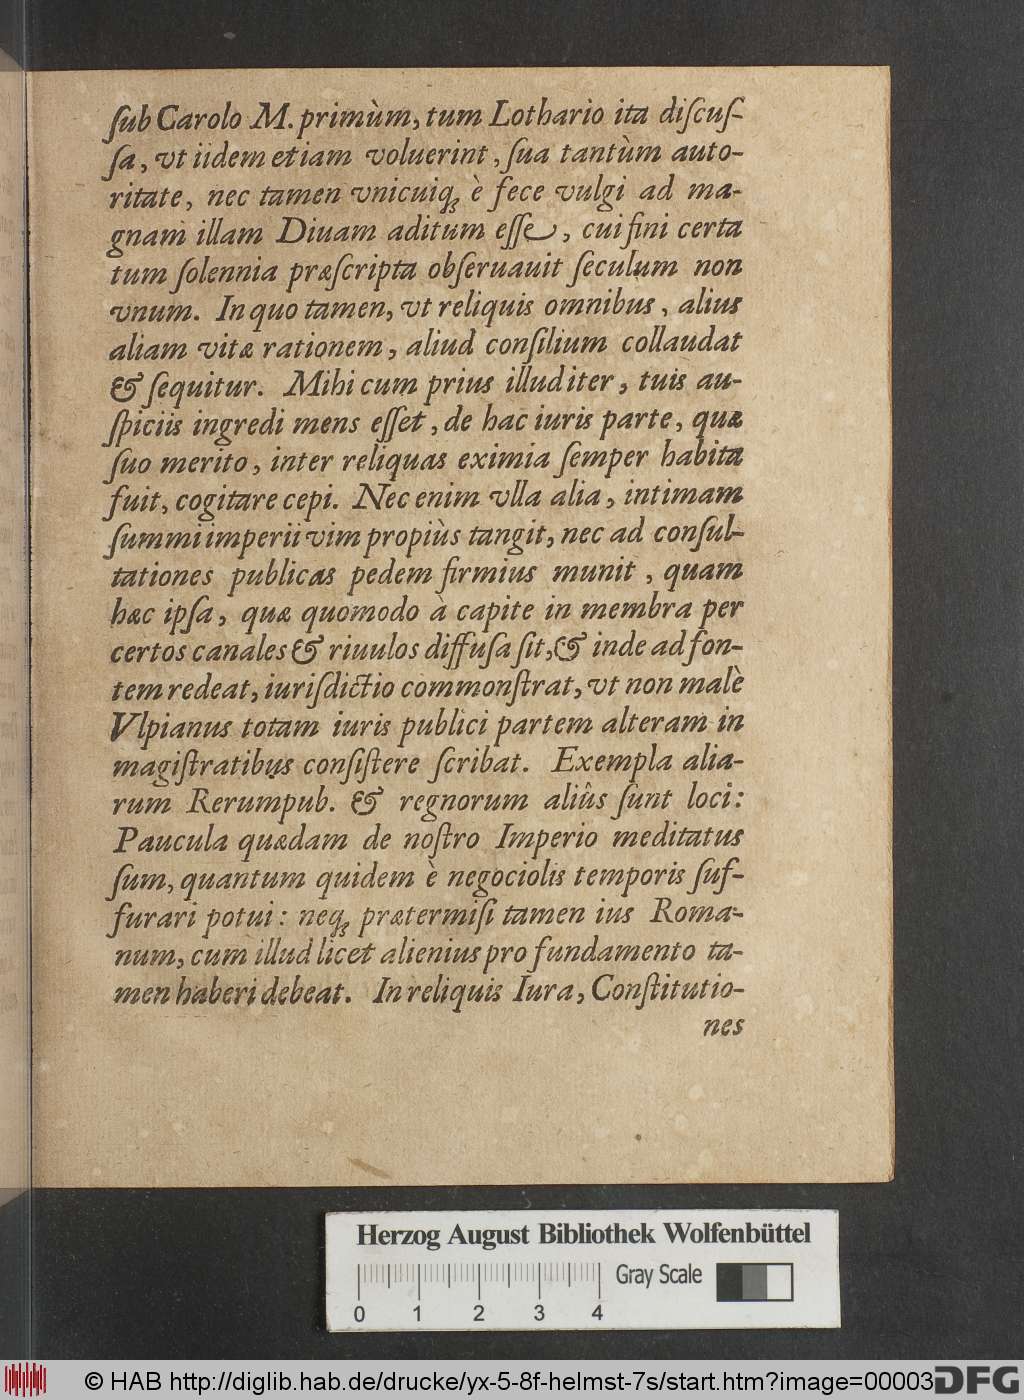 ſub Carolo M. primùm, tum Lothario ita diſcuſ-
ſa, vt iidem etiam voluerint, ſua tantùm auto-
ritate, nec tamen vnicuiqꝫ è fece vulgi ad ma-
gnam illam Diuam aditum eſſe, cui fini certa
tum ſolennia præſcripta obſeruauit ſeculum non
vnum. In quo tamen, vt reliquis omnibus, alius
aliam vitæ rationem, aliud conſilium collaudat
& ſequitur. Mihi cum prius illud iter, tuis au-
ſpiciis ingredi mens eſſet, de hac iuris parte, quæ
ſuo merito, inter reliquas eximia ſemper habita
fuit, cogitare cepi. Nec enim vlla alia, intimam
ſummi imperii vim propiùs tangit, nec ad conſul-
tationes publicas pedem firmius munit, quam
hæc ipſa, quæ quomodo à capite in membra per
certos canales & riuulos diffuſa ſit, & inde ad fon-
tem redeat, iuriſdictio commonſtrat, vt non malè
Vlpianus totam iuris publici partem alteram in
magiſtratibus conſiſtere ſcribat. Exempla alia-
rum Rerumpub. & regnorum aliûs ſunt loci:
Paucula quædam de noſtro Imperio meditatus
ſum, quantum quidem è negociolis temporis ſuf-
furari potui: neqꝫ prætermiſi tamen ius Roma-
num, cum illud licet alienius pro fundamento ta-
men haberi debeat. In reliquis Iura, Conſtitutio-
nes
Herzog August Bibliothek Wolfenbüttel
Gray Scale
0 1 2 3 4
© HAB http://diglib.hab.de/drucke/yx-5-8f-helmst-7s/start.htm?image=00003
DFG